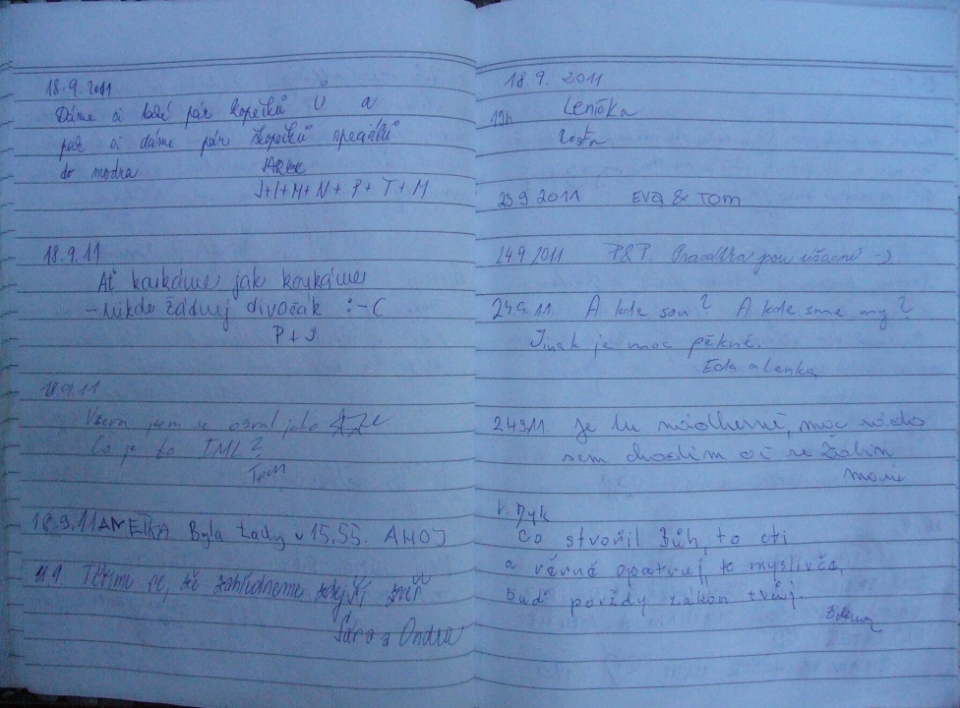 18.9.2011
Dáme si pár kopečků Ů a
pak si dáme pár kopečků
do modra
J+I+M+N+P+T+M
18.9.11
Ať koukáme jak koukáme
- nikde žádnej divočák :-(
P + J
18.9.11
Včera jsem se ožral jako
Co je to TML?
Tom
18.9.11 ANETKA Byla tady v 15.55. AHOJ
Těšíme se, že zahlídneme zdejší zvěř
Sára a Ondra
18.9. 2011
19h Lenička
23.9 2011 EVA & TOM
24.9 2011 P&P. Prasátka jsou úžasné :-)
24.9.11 A kde sou? A kde sme my?
Jinak je moc pěkně.
Eda a Lenka
24.9.11 Je tu nádherně, moc ráda
sem chodím
Co stvořil Bůh, to cti
a věrně opatruj, to myslivče,
budiž povždy zákon tvůj.